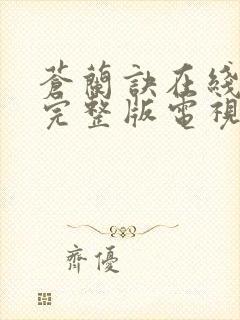 蒼蘭訣在綫
完整版電視
齊優